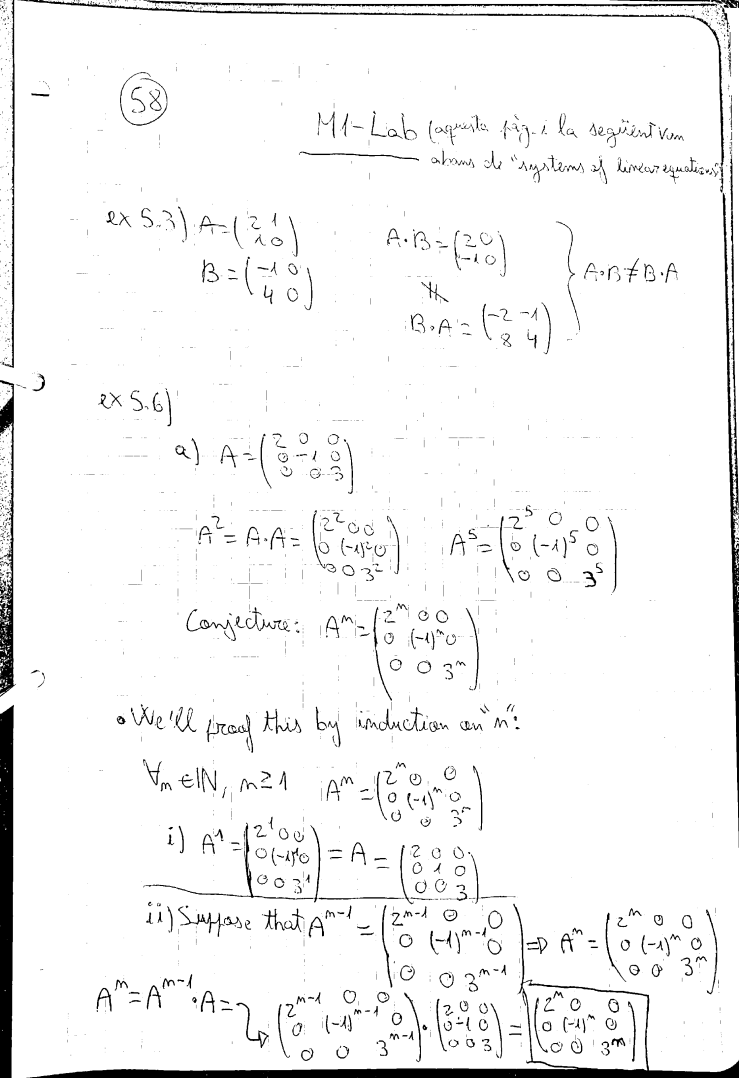 58
M1-Lab (aquesta pàg. i la següent van
abans de "systems of linear equations"
ex 5.3) A=(2 1
1 0)
B=(-1 0
4 0)
A·B=(2 0
-1 0)
≠
B·A=(-2 -1
8 4)
} A·B≠B·A
ex 5.6)
a) A=(2 0 0
0 -1 0
0 0 3)
A²=A·A=(2² 0 0
0 (-1)² 0
0 0 3²)
A⁵=(2⁵ 0 0
0 (-1)⁵ 0
0 0 3⁵)
Conjecture: Aⁿ=(2ⁿ 0 0
0 (-1)ⁿ 0
0 0 3ⁿ)
• We'll proof this by induction on "n":
∀n∈ℕ, n≥1 Aⁿ=(2ⁿ 0 0
0 (-1)ⁿ 0
0 0 3ⁿ)
i) A¹=(2¹ 0 0
0 (-1)¹ 0
0 0 3¹) = A = (2 0 0
0 1 0
0 0 3)
ii) Suppose that Aⁿ⁻¹=(2ⁿ⁻¹ 0 0
0 (-1)ⁿ⁻¹ 0
0 0 3ⁿ⁻¹) ⇒ Aⁿ=(2ⁿ 0 0
0 (-1)ⁿ 0
0 0 3ⁿ)
Aⁿ=Aⁿ⁻¹·A= (2ⁿ⁻¹ 0 0
0 (-1)ⁿ⁻¹ 0
0 0 3ⁿ⁻¹)·(2 0 0
0 -1 0
0 0 3) = (2ⁿ 0 0
0 (-1)ⁿ 0
0 0 3ⁿ)